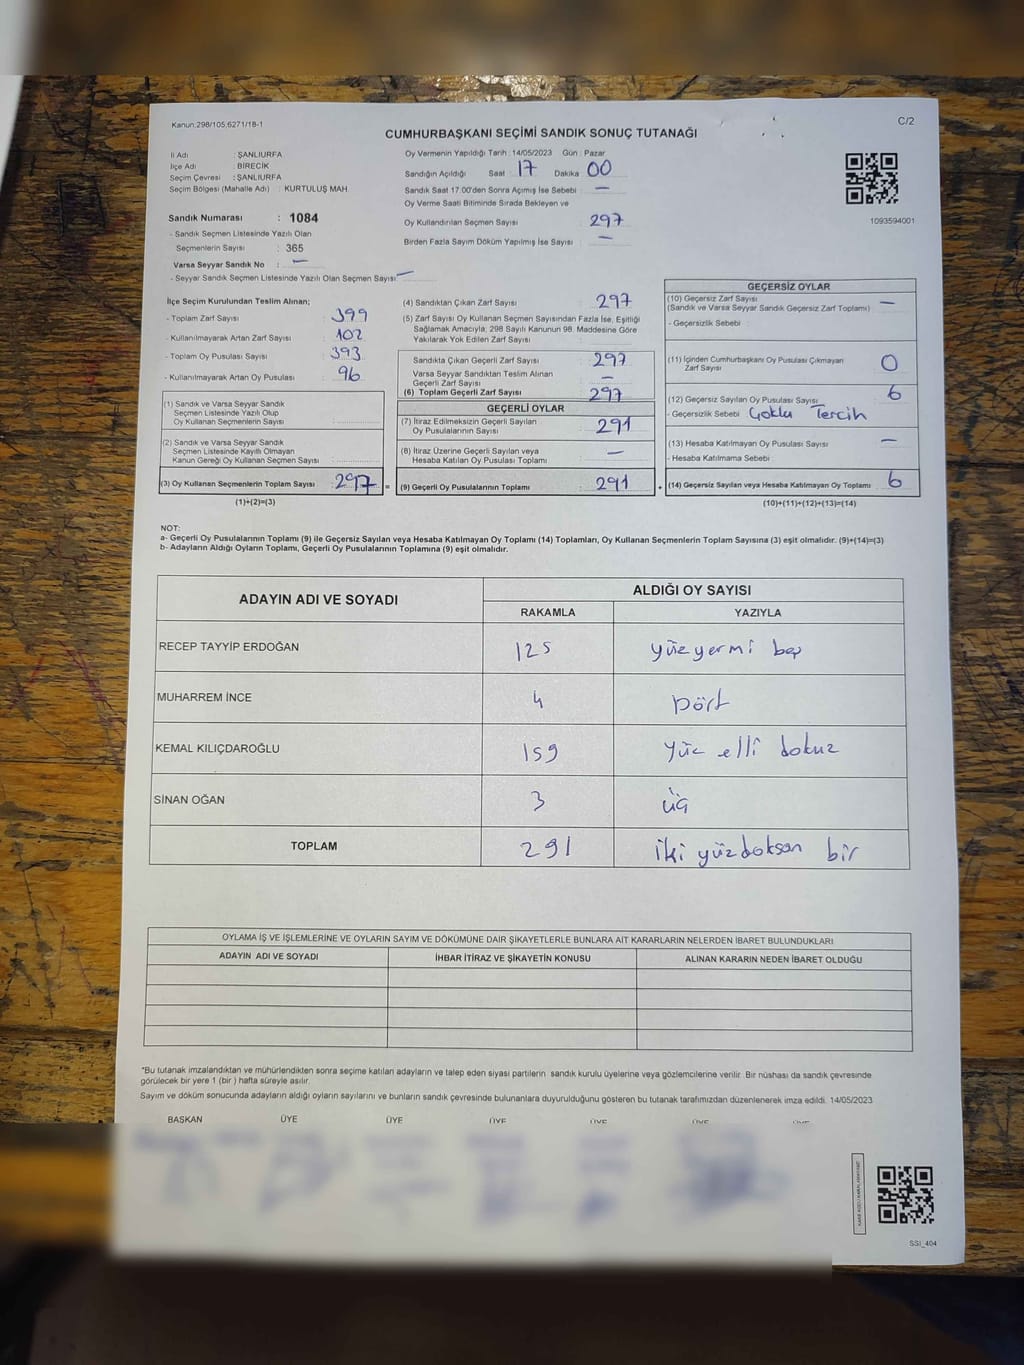 Kanun.298/105,6271/18-1
C/2
CUMHURBAŞKANI SEÇİMİ SANDIK SONUÇ TUTANAĞI
İl Adı : ŞANLIURFA
İlçe Adı : BİRECİK
Seçim Çevresi : ŞANLIURFA
Seçim Bölgesi (Mahalle Adı) : KURTULUŞ MAH.
Sandık Numarası : 1084
- Sandık Seçmen Listesinde Yazılı Olan
Seçmenlerin Sayısı : 365
Varsa Seyyar Sandık No : —
- Seyyar Sandık Seçmen Listesinde Yazılı Olan Seçmen Sayısı: —
Oy Vermenin Yapıldığı Tarih : 14/05/2023 Gün : Pazar
Sandığın Açıldığı Saat : 17 Dakika : 00
Sandık Saat 17.00'den Sonra Açımış İse Sebebi : —
Oy Verme Saati Bitiminde Sırada Bekleyen ve
Oy Kullandırılan Seçmen Sayısı : 297
Birden Fazla Sayım Döküm Yapılmış İse Sayısı : —
1093594001
İlçe Seçim Kurulundan Teslim Alınan;
- Toplam Zarf Sayısı : 399
- Kullanılmayarak Artan Zarf Sayısı : 102
- Toplam Oy Pusulası Sayısı : 393
- Kullanılmayarak Artan Oy Pusulası : 96
(1) Sandık ve Varsa Seyyar Sandık
Seçmen Listesinde Yazılı Olup
Oy Kullanan Seçmenlerin Sayısı :
(2) Sandık ve Varsa Seyyar Sandık
Seçmen Listesinde Kayıtlı Olmayan
Kanun Gereği Oy Kullanan Seçmen Sayısı :
(3) Oy Kullanan Seçmenlerin Toplam Sayısı : 297 =
(1)+(2)=(3)
(4) Sandıktan Çıkan Zarf Sayısı : 297
(5) Zarf Sayısı Oy Kullanan Seçmen Sayısından Fazla İse, Eşitliği
Sağlamak Amacıyla, 298 Sayılı Kanunun 98. Maddesine Göre
Yakılarak Yok Edilen Zarf Sayısı :
Sandıkta Çıkan Geçerli Zarf Sayısı : 297
Varsa Seyyar Sandıktan Teslim Alınan
Geçerli Zarf Sayısı : —
(6) Toplam Geçerli Zarf Sayısı : 297
GEÇERLİ OYLAR
(7) İtiraz Edilmeksizin Geçerli Sayılan
Oy Pusulalarının Sayısı : 291
(8) İtiraz Üzerine Geçerli Sayılan veya
Hesaba Katılan Oy Pusulası Toplamı : —
(9) Geçerli Oy Pusulalarının Toplamı : 291 +
GEÇERSİZ OYLAR
(10) Geçersiz Zarf Sayısı
(Sandık ve Varsa Seyyar Sandık Geçersiz Zarf Toplamı) : —
- Geçersizlik Sebebi :
(11) İçinden Cumhurbaşkanı Oy Pusulası Çıkmayan
Zarf Sayısı : 0
(12) Geçersiz Sayılan Oy Pusulası Sayısı : 6
- Geçersizlik Sebebi : Çoklu Tercih
(13) Hesaba Katılmayan Oy Pusulası Sayısı : —
- Hesaba Katılmama Sebebi :
(14) Geçersiz Sayılan veya Hesaba Katılmayan Oy Toplamı : 6
(10)+(11)+(12)+(13)=(14)
NOT:
a- Geçerli Oy Pusulalarının Toplamı (9) ile Geçersiz Sayılan veya Hesaba Katılmayan Oy Toplamı (14) Toplamları, Oy Kullanan Seçmenlerin Toplam Sayısına (3) eşit olmalıdır. (9)+(14)=(3)
b- Adayların Aldığı Oyların Toplamı, Geçerli Oy Pusulalarının Toplamına (9) eşit olmalıdır.
ADAYIN ADI VE SOYADI
ALDIĞI OY SAYISI
RAKAMLA YAZIYLA
RECEP TAYYİP ERDOĞAN 125 yüzyermi beş
MUHARREM İNCE 4 Dört
KEMAL KILIÇDAROĞLU 159 yüz elli dokuz
SİNAN OĞAN 3 üç
TOPLAM 291 iki yüzdoksan bir
OYLAMA İŞ VE İŞLEMLERİNE VE OYLARIN SAYIM VE DÖKÜMÜNE DAİR ŞİKAYETLERLE BUNLARA AİT KARARLARIN NELERDEN İBARET BULUNDUKLARI
ADAYIN ADI VE SOYADI İHBAR İTİRAZ VE ŞİKAYETİN KONUSU ALINAN KARARIN NEDEN İBARET OLDUĞU
"Bu tutanak imzalandıktan ve mühürlendikten sonra seçime katılan adayların ve talep eden siyasi partilerin sandık kurulu üyelerine veya gözlemcilerine verilir. Bir nüshası da sandık çevresinde
görülecek bir yere 1 (bir ) hafta süreyle asılır.
Sayım ve döküm sonucunda adayların aldığı oyların sayılarını ve bunların sandık çevresinde bulunanlara duyurulduğunu gösteren bu tutanak tarafımızdan düzenlenerek imza edildi. 14/05/2023
BAŞKAN ÜYE ÜYE ÜYE ÜYE ÜYE ÜYE
SSI_404